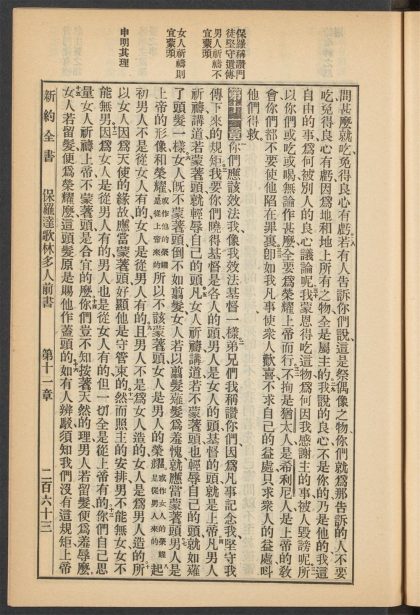 保羅稱讚門
徒堅守遺傳
男人祈禱不
宜蒙頭
女人祈禱則
宜蒙頭
申明其理
問甚麼就吃免得良心有虧若有人告訴你們說這是祭偶像之物你們就爲那告訴的人不要
吃免得良心有虧因爲地和地上所有之物全是屬主的我說的良心不是你的乃是他的我這
自由的事爲何被別人的良心議論呢我蒙恩得吃這物爲何因我感謝主的事被人毀謗呢所
以你們或吃或喝無論作甚麼全要爲榮耀上帝而行不拘是猶太人是希利尼人是上帝的敎
會你們都不要使他陷在罪裏卽如我凡事使衆人歡喜不求自己的益處只求衆人的益處呌
他們得救
第十一章你們應該效法我像我效法基督一樣弟兄們我稱讚你們因爲凡事記念我堅守我
傳下來的規矩我要你們曉得基督是各人的頭男人是女人的頭基督的頭就是上帝凡男人
祈禱講道若蒙著頭就輕辱自己的頭凡女人祈禱講道若不蒙著頭也輕辱自己的頭就如薙
了頭髮一樣女人旣不蒙著頭倒不如翦髮女人若以翦髮薙髮爲羞愧就應當蒙著頭男人是
上帝的形像和榮耀或作他的榮耀是從上帝來的所以不該蒙著頭女人是男人的榮耀或作女人的榮耀是從男人來的起
初男人不是從女人有的女人是從男人有的且男人不是爲女人造的女人是爲男人造的所
以女人因爲天使的緣故應當蒙著頭在顯他是守管束的然而照主的安排男不能無女女不
能無男因爲女人是從男人有的男人也是從女人有的但一切全是從上帝有的你們自己思
量女人祈禱上帝不蒙著頭是合宜的麼你們豈不知按著天然的理男人若留髮便爲羞辱麼
女人若留髮便爲榮耀麼這頭髮原是賜他作蓋頭的如有人辨駁須知我們沒有這規矩上帝
新約全書 保羅達歌林多人前書 第十一章 二百六十三